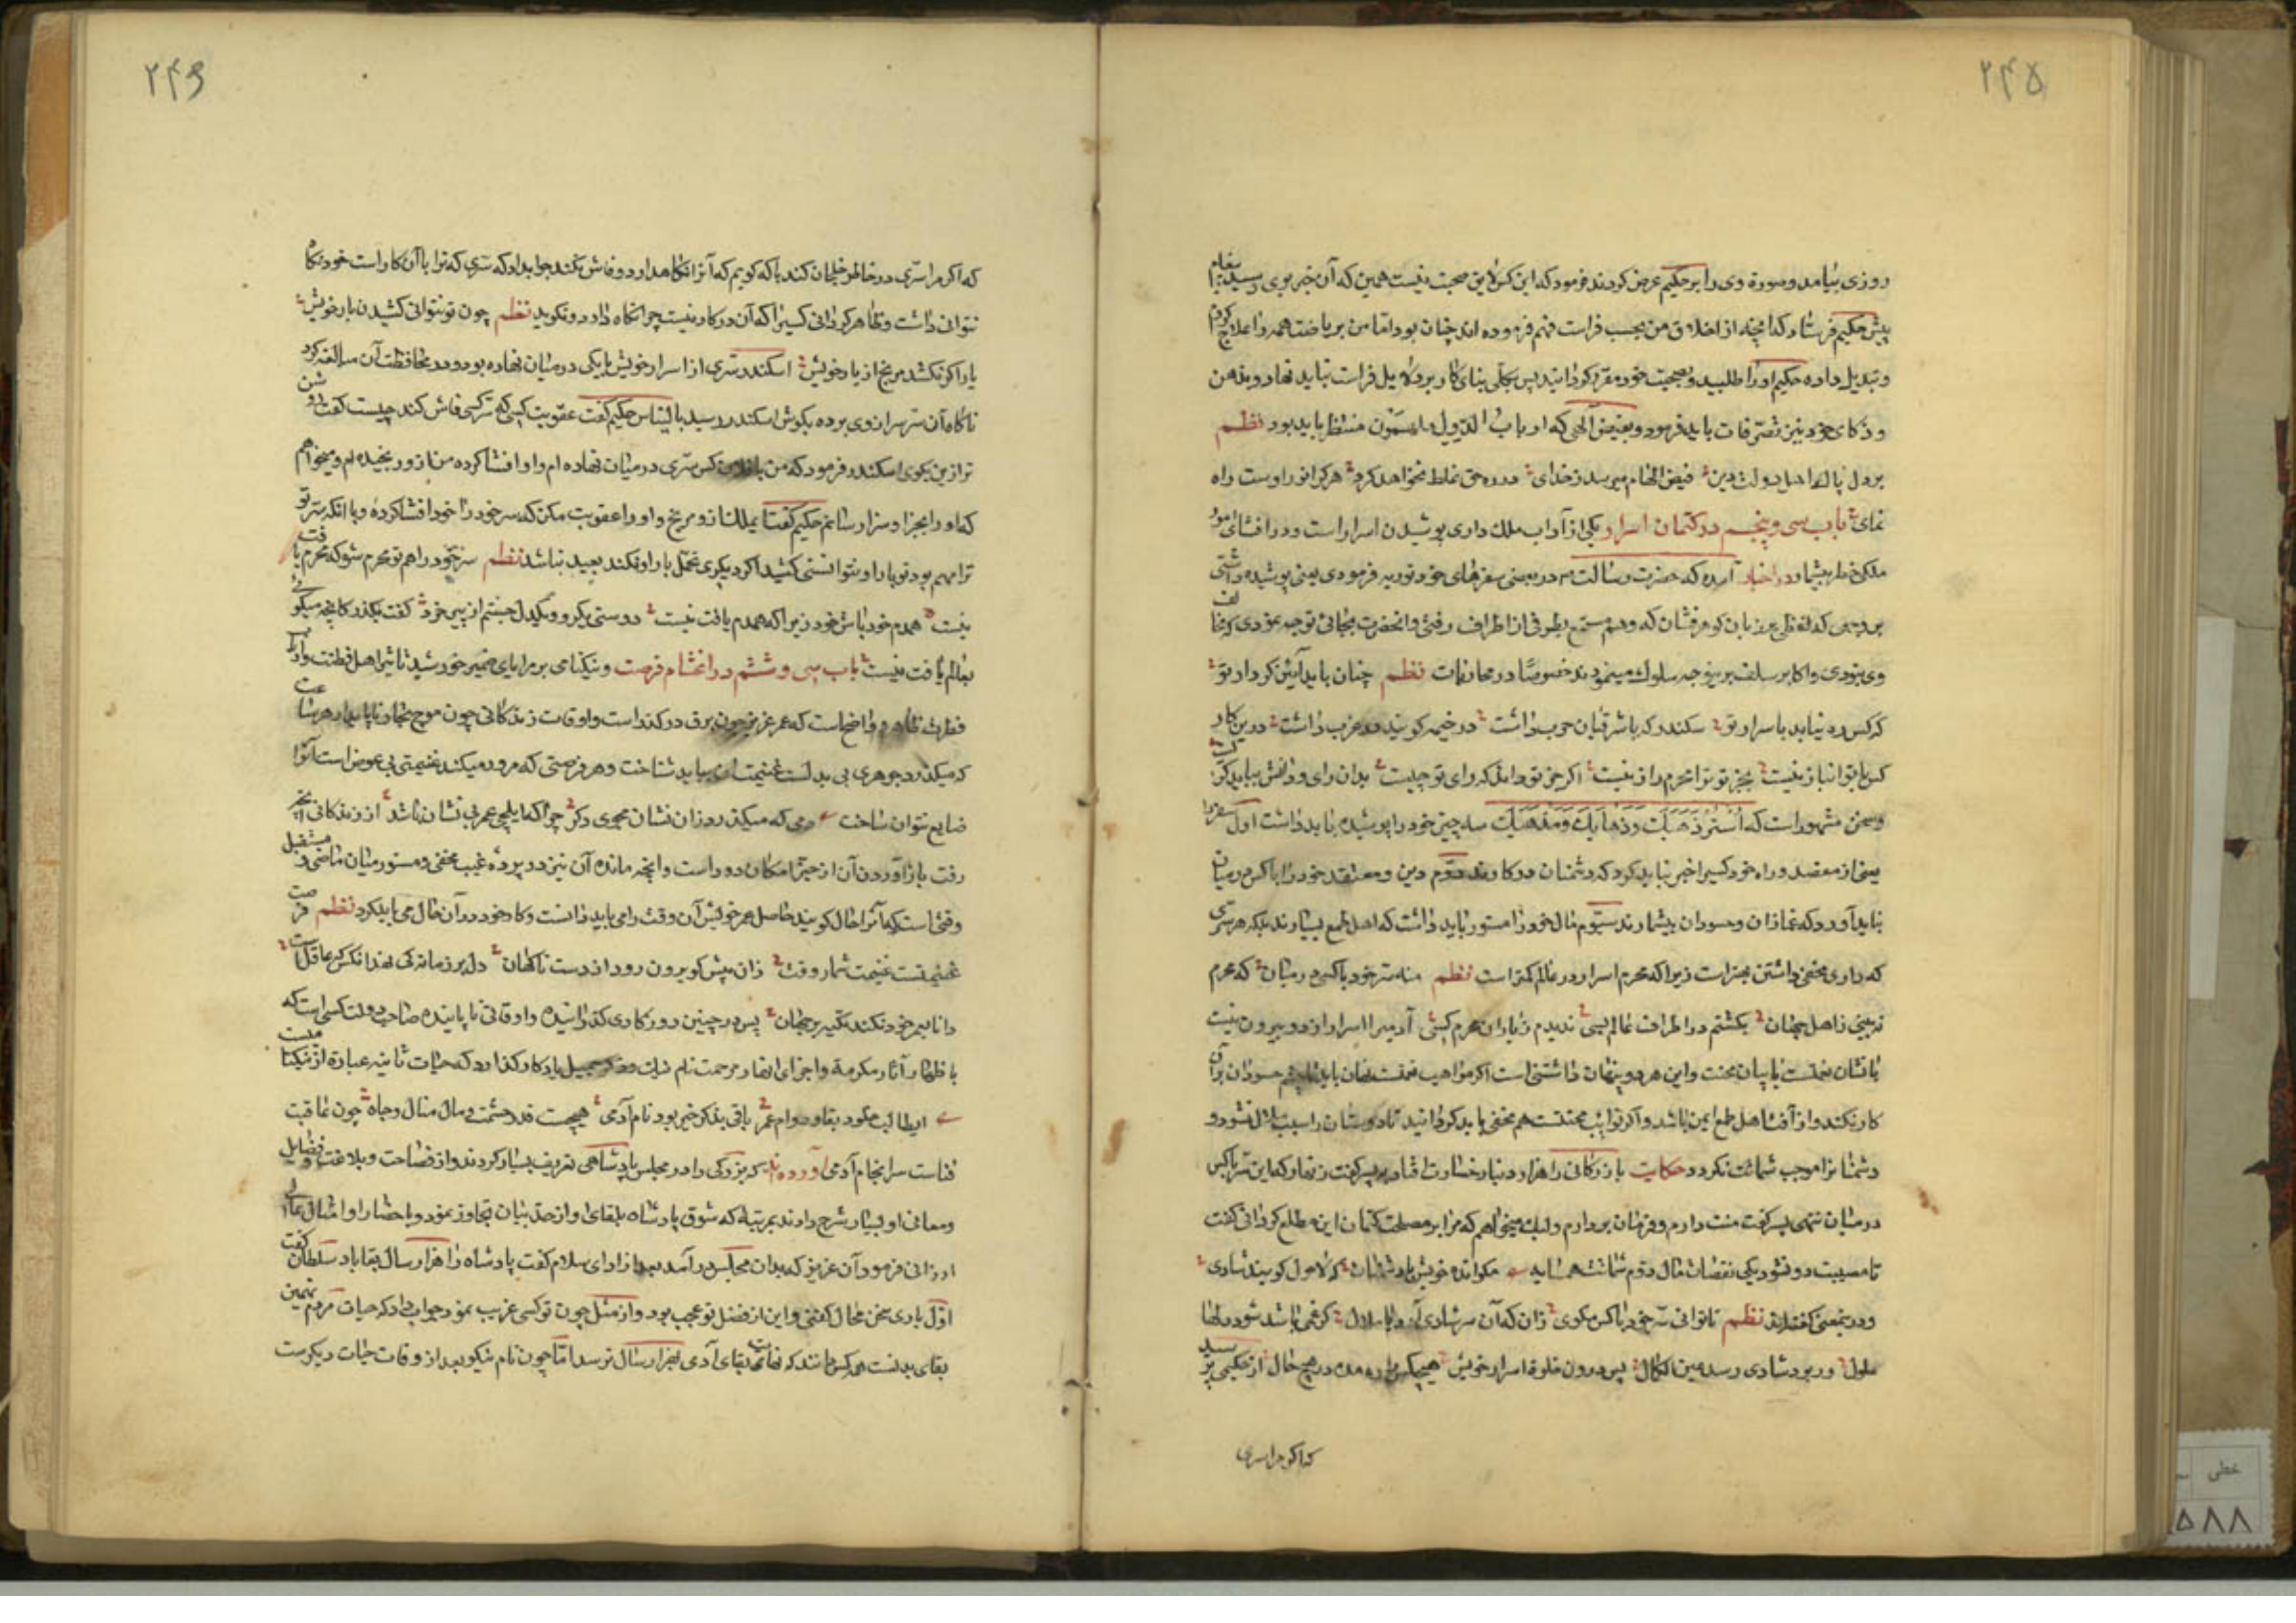 ۲۴۵
روزی بیامد و صورة وی را بر حکیم عرض کردند فرمود که این کس لایق صحبت نیست همین که آن خبر بوی رسید پیغام
پیش حکیم فرستاد که آنچه از اخلاق من بحسب فراست فهم فرموده اند چنان بود اما من بریاضت همه را علاج کردم
و تبدیل داده حکیم او را طلبید و بصحبت خود مقرر کردانید پس بکلی بنای کار بر دلایل فراست نباید نهاد و بذهن
و ذکای خود نیز تصرفات باید فرمود و بفیض الهی که ارباب الدول ملهمون منتظر باید بود نظم
بر دل پاک اهل دولت دین فیض الهام میرسد ز خدای در ره حق غلط نخواهد کرد هر کرا نور اوست راه
نمای باب سی و پنجم در کتمان اسرار یکی از آداب ملک داری پوشیدن اسرار است و در افشای امور
ملکی خطر بیشمار در اخبار آمده که حضرت رسالت م در بعضی سفرهای خود توریه فرمودی یعنی پوشیده داشتی
بر وجهی که لفظی بر زبان کوهرفشان که وهم مستمع بطرفی از اطراف رفتی و آنحضرت بجانبی توجه نمودی که مخالف
وی بودی و اکابر سلف برینوجه سلوک مینمودند خصوصا در محاربات نظم چنان باید آیین کردار تو
که کس ره نیابد باسرار تو سکندر که با شرقیان حرب داشت در خیمه کویند در غرب داشت درین کار
کس با تو انباز نیست بجز تو ترا محرم راز نیست اکر جز تو داند که رای تو چیست بدان رای و دانش بباید کریست
و سخن مشهور است که اُستُر ذَهَبَکَ وَ ذَهابَکَ وَ مَذهَبَکَ سه چیز خود را پوشیده باید داشت اول سفر را
یعنی از مقصد و راه خود کسیرا خبر نباید کرد که دشمنان در کارند دوم دین و معتقد خود را با کس در میان
نباید آورد که غمازان و حسودان بیشمارند سیوم مال خود را مستور باید داشت که اهل طمع بسیارند بلکه هر سری
که داری مخفی داشتن بهتر است زیرا که محرم اسرار در عالم کمتر است نظم منه سر خود با کسی در میان که محرم
نه بینی ز اهل جهان بکشتم در اطراف عالم بسی ندیدم ز یاران محرم کسی آدمیرا اسرار از دو بیرون نیست
یا نشان نعمت یا بیان محنت و این هر دو پنهان داشتنی است اکر مواهب نعمت نهان باید تا چشم حسودان بر آن
کار نکند و از آفت اهل طمع ایمن باشد و اکر نوایب محنتست هم مخفی باید کردانید تا دوستان را سبب ملال نشود و
دشمنانرا موجب شماتت نکردد حکایت بازرکانی را هزار دینار خسارت افتاد به پسر کفت زنهار که این سر با کس
در میان ننهی پسر کفت منت دارم و فرمان بردارم ولیک میخواهم که مرا بر مصلحت کتمان این مطلع کردانی کفت
تا مصیبت دو نشود یکی نقصان مال دوم شماتت همسایه مکو انده خویش با دشمنان که لاحول کویند شادی
و در ینمعنی کفته اند نظم تا توانی سر خود با کس مکوی زان که آن سر شادی آرد یا ملال کر غمی باشد شود دلها
ملول ور بود شادی رسد عین الکمال پس درون خلوة اسرار خویش هیچکس را ره مده در هیچ حال از حکیمی پرسید
که اکر مرا سری
۲۴۶
که اکر مرا سری در خاطر خلجان کند با که کویم که آنرا نکاهدارد و فاش نکند جواب داد که سری که ترا با آن کار است خود نکاه
نتوانی داشت و ظاهر کردانی کسیرا که آن در کار نیست چرا نکاه دارد و نکوید نظم چون تو نتوانی کشیدن بار خویش
یار اکر نکشد مرنج از یار خویش اسکندر سری از اسرار خویش با یکی در میان نهاده بود و در محافظت آن مبالغه کرد
ناکاه آن سر سر از وی برده بکوش اسکندر رسید بالیناس حکیم کفت عقوبت کسی که سر کسی فاش کند چیست کفت روشن
تر ازین بکوی اسکندر فرمود که من با فلان کس سری در میان نهاده ام و او افشا کرده من از و رنجیده ام و میخواهم
که او را بجزا و سزا رسانم حکیم کفت ای ملک از و مرنج و او را عقوبت مکن که سر خود را خود افشا کردهٔ و با انکه سر تو
ترا مهم بود تو بار او نتوانستی کشید اکر دیکری تحمل بار او نکند بعید نباشد نظم سر خود را هم تو محرم شو که محرم یافت
نیست همدم خود باش خود زیرا که همدم یافت نیست دوستی یکرو و یکدل جستم از پیر خرد کفت بکذر کانچه میکوئی
بعالم یافت نیست باب سی و ششم در اغتنام فرصت و نیکنامی بر مرایای ضمیر خورشید تاثیر اهل فطنت و ارباب
فطرت ظاهر و واضح است که عمر عزیز چون برق در کذر است و اوقات زندکانی چون موج بحار ناپایدار هر ساعت
که میکذرد جوهری بی بدلست غنیمت آن بباید شناخت و هر فرصتی که مرور میکند غنیمتی بی عوض است آنرا
ضایع نتوان ساخت دمی که میکذرد زان نشان مجوی دکر چرا که ایلچی عمر بی نشان باشد از زندکانی آنچه
رفت باز آوردن آن از حیز امکان دور است و آنچه مانده آن نیز در پردهٔ غیب مخفی و مستور میان ماضی و مستقبل
وقتی است که آنرا حال کویند حاصل عمر خویش آن وقت را می باید دانست و کار خود در آن حال می باید کرد نظم فرصت
غنیمتست غنیمت شمار وقت زان پیش کو برون رود از دست ناکهان دل بر زمانه کی نهد انکس که عاقل است
دانا بعمر خود نکند تکیه بر جهان پس در چنین روزکاری کذراننده و اوقاتی ناپاینده صاحب دولت کسی است که
باظهار آثار مکرمة و اجرای انهار مرحمت نام نیک و ذکر جمیل یادکار کذارد که حیات ثانیه عبارة از نیکنامیست
ایطالب خلود بقا و دوام عمر باقی بذکر خیر بود نام آدمی هیچست قدر حشمت و مال و منال و جاه چون عاقبت
فناست سرانجام آدمی آورده اند که بزرکی را در مجلس پادشاهی تعریف بسیار کردند و از فصاحت و بلاغت و فضایل
و معانی او بسیار شرح دادند بمرتبهٔ که شوق پادشاه بلقای او از حد بیان تجاوز نمود و باحضار او امثال عالی
ارزانی فرمود آن عزیز که بدان مجلس در آمد بعد از ادای سلام کفت پادشاه را هزار سال بقا باد سلطان کفت
اول باری سخن محال کفتی و این از فضل تو عجب بود و از مثل چون تو کسی غریب نمود جواب داد که حیات مردم همین
بقای بدنست همه کس دانند که نهایت بقای آدمی بهزار سال نرسد اما چون نام نیکو بعد از وفات حیات دیکرست
خطی
۵۸۸